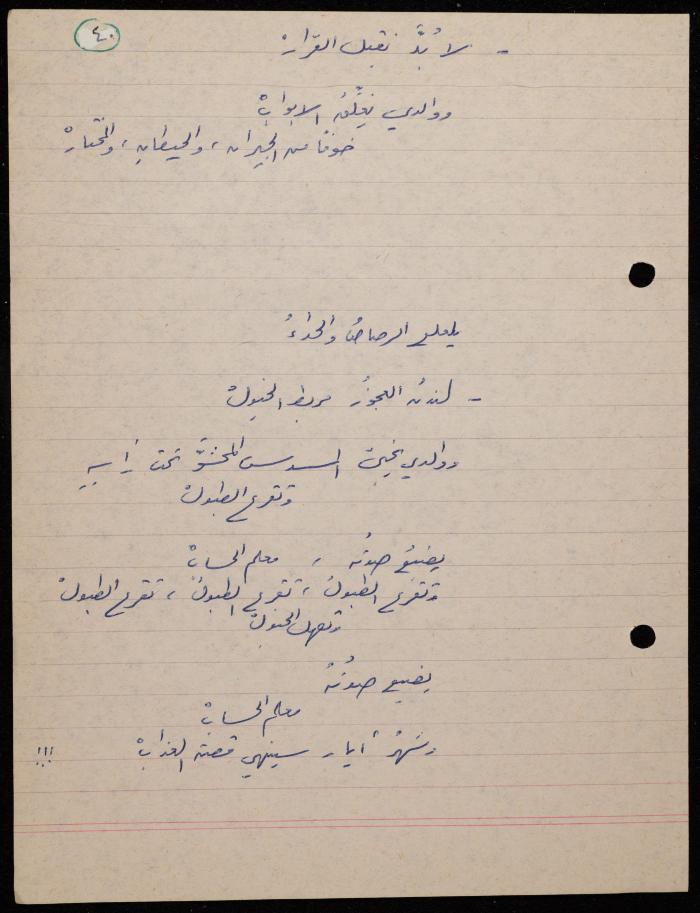 ٤٠
- لا بُدَّ نقبل القرارْ
ووالدي يُغلِّقُ الابوابْ
خوفًا من الجيران، والحيطان، والمختارْ
يلعلع الرصاصُ والحداءُ
- لندنُ العجوزُ مربط الخيولْ
ووالدي يخبئ المسدس المحشوَّ تحت رأسهِ
وتقرع الطبولْ
يضيعُ صوتُه ، معلم الحسابْ
وتقرع الطبولُ، تقرع الطبولُ، تقرع الطبولْ
وتصهل الخيولْ
يضيع صوتُهُ
معلم الحسابْ
وشهرُ أيار سينهي قصة العذابْ !!!